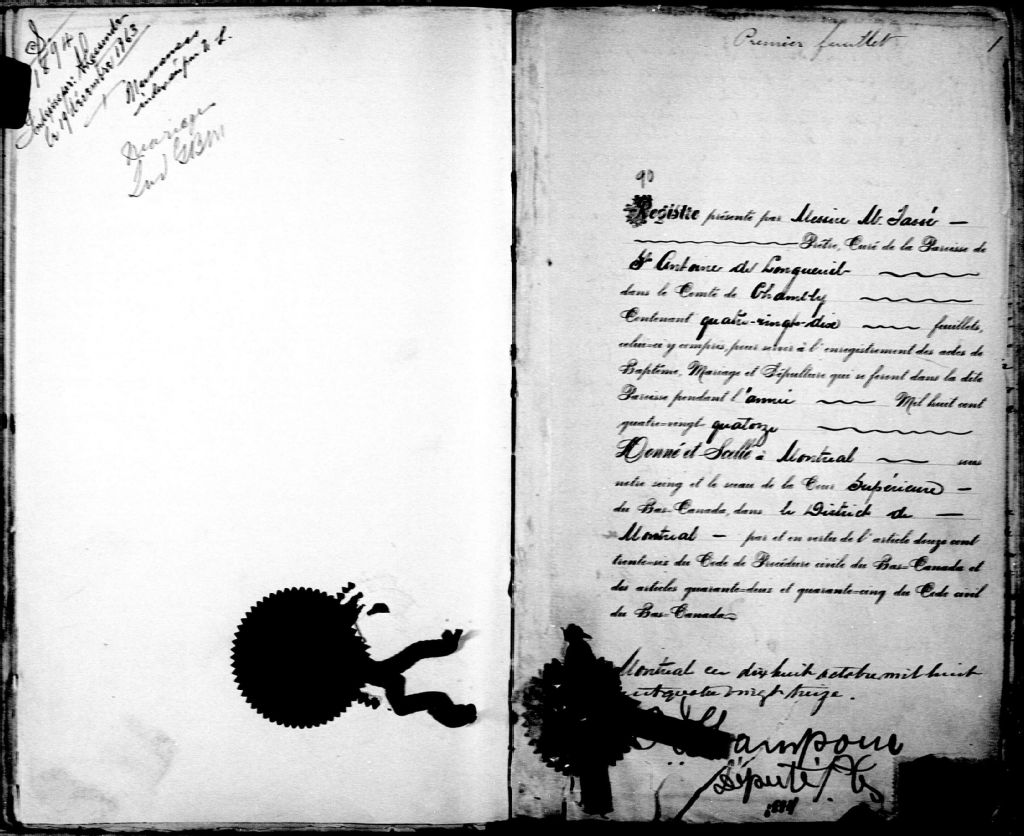 1894
le 19 décembre 1963
Mariage
Premier feuillet 1
90
Registre présenté par Messire M. Tassé
Prêtre, Curé de la Paroisse de
St Antoine de Longueuil
dans le Comté de Chambly
Contenant quatre-vingt-dix feuillets,
celui-ci y compris, pour servir à l'enregistrement des actes de
Baptême, Mariage et Sépulture qui se feront dans la dite
Paroisse pendant l'année Mil huit cent
quatre-vingt quatorze
Donné et Scellé à Montréal sous
notre seing et le sceau de la Cour Supérieure
du Bas-Canada, dans le District de
Montréal par et en vertu de l'article douze cent
trente-six du Code de Procédure civile du Bas-Canada et
des articles quarante-deux et quarante-cinq du Code civil
du Bas-Canada
Montréal ce dix huit octobre mil huit
cent quatre vingt treize.
Député P.